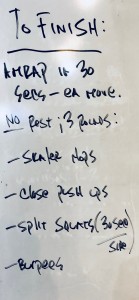 To FINISH:
AMRAP in 30
secs - ea move.
NO Rest; 3 Rounds:
- Skater Hops
- Close Push ups
- Split Squats (30sec/
side)
- Burpees